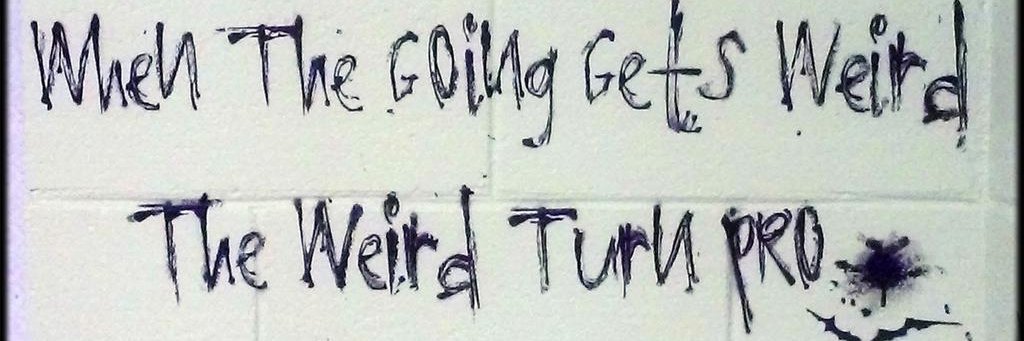 When The Going Gets Weird
The Weird Turn PRO